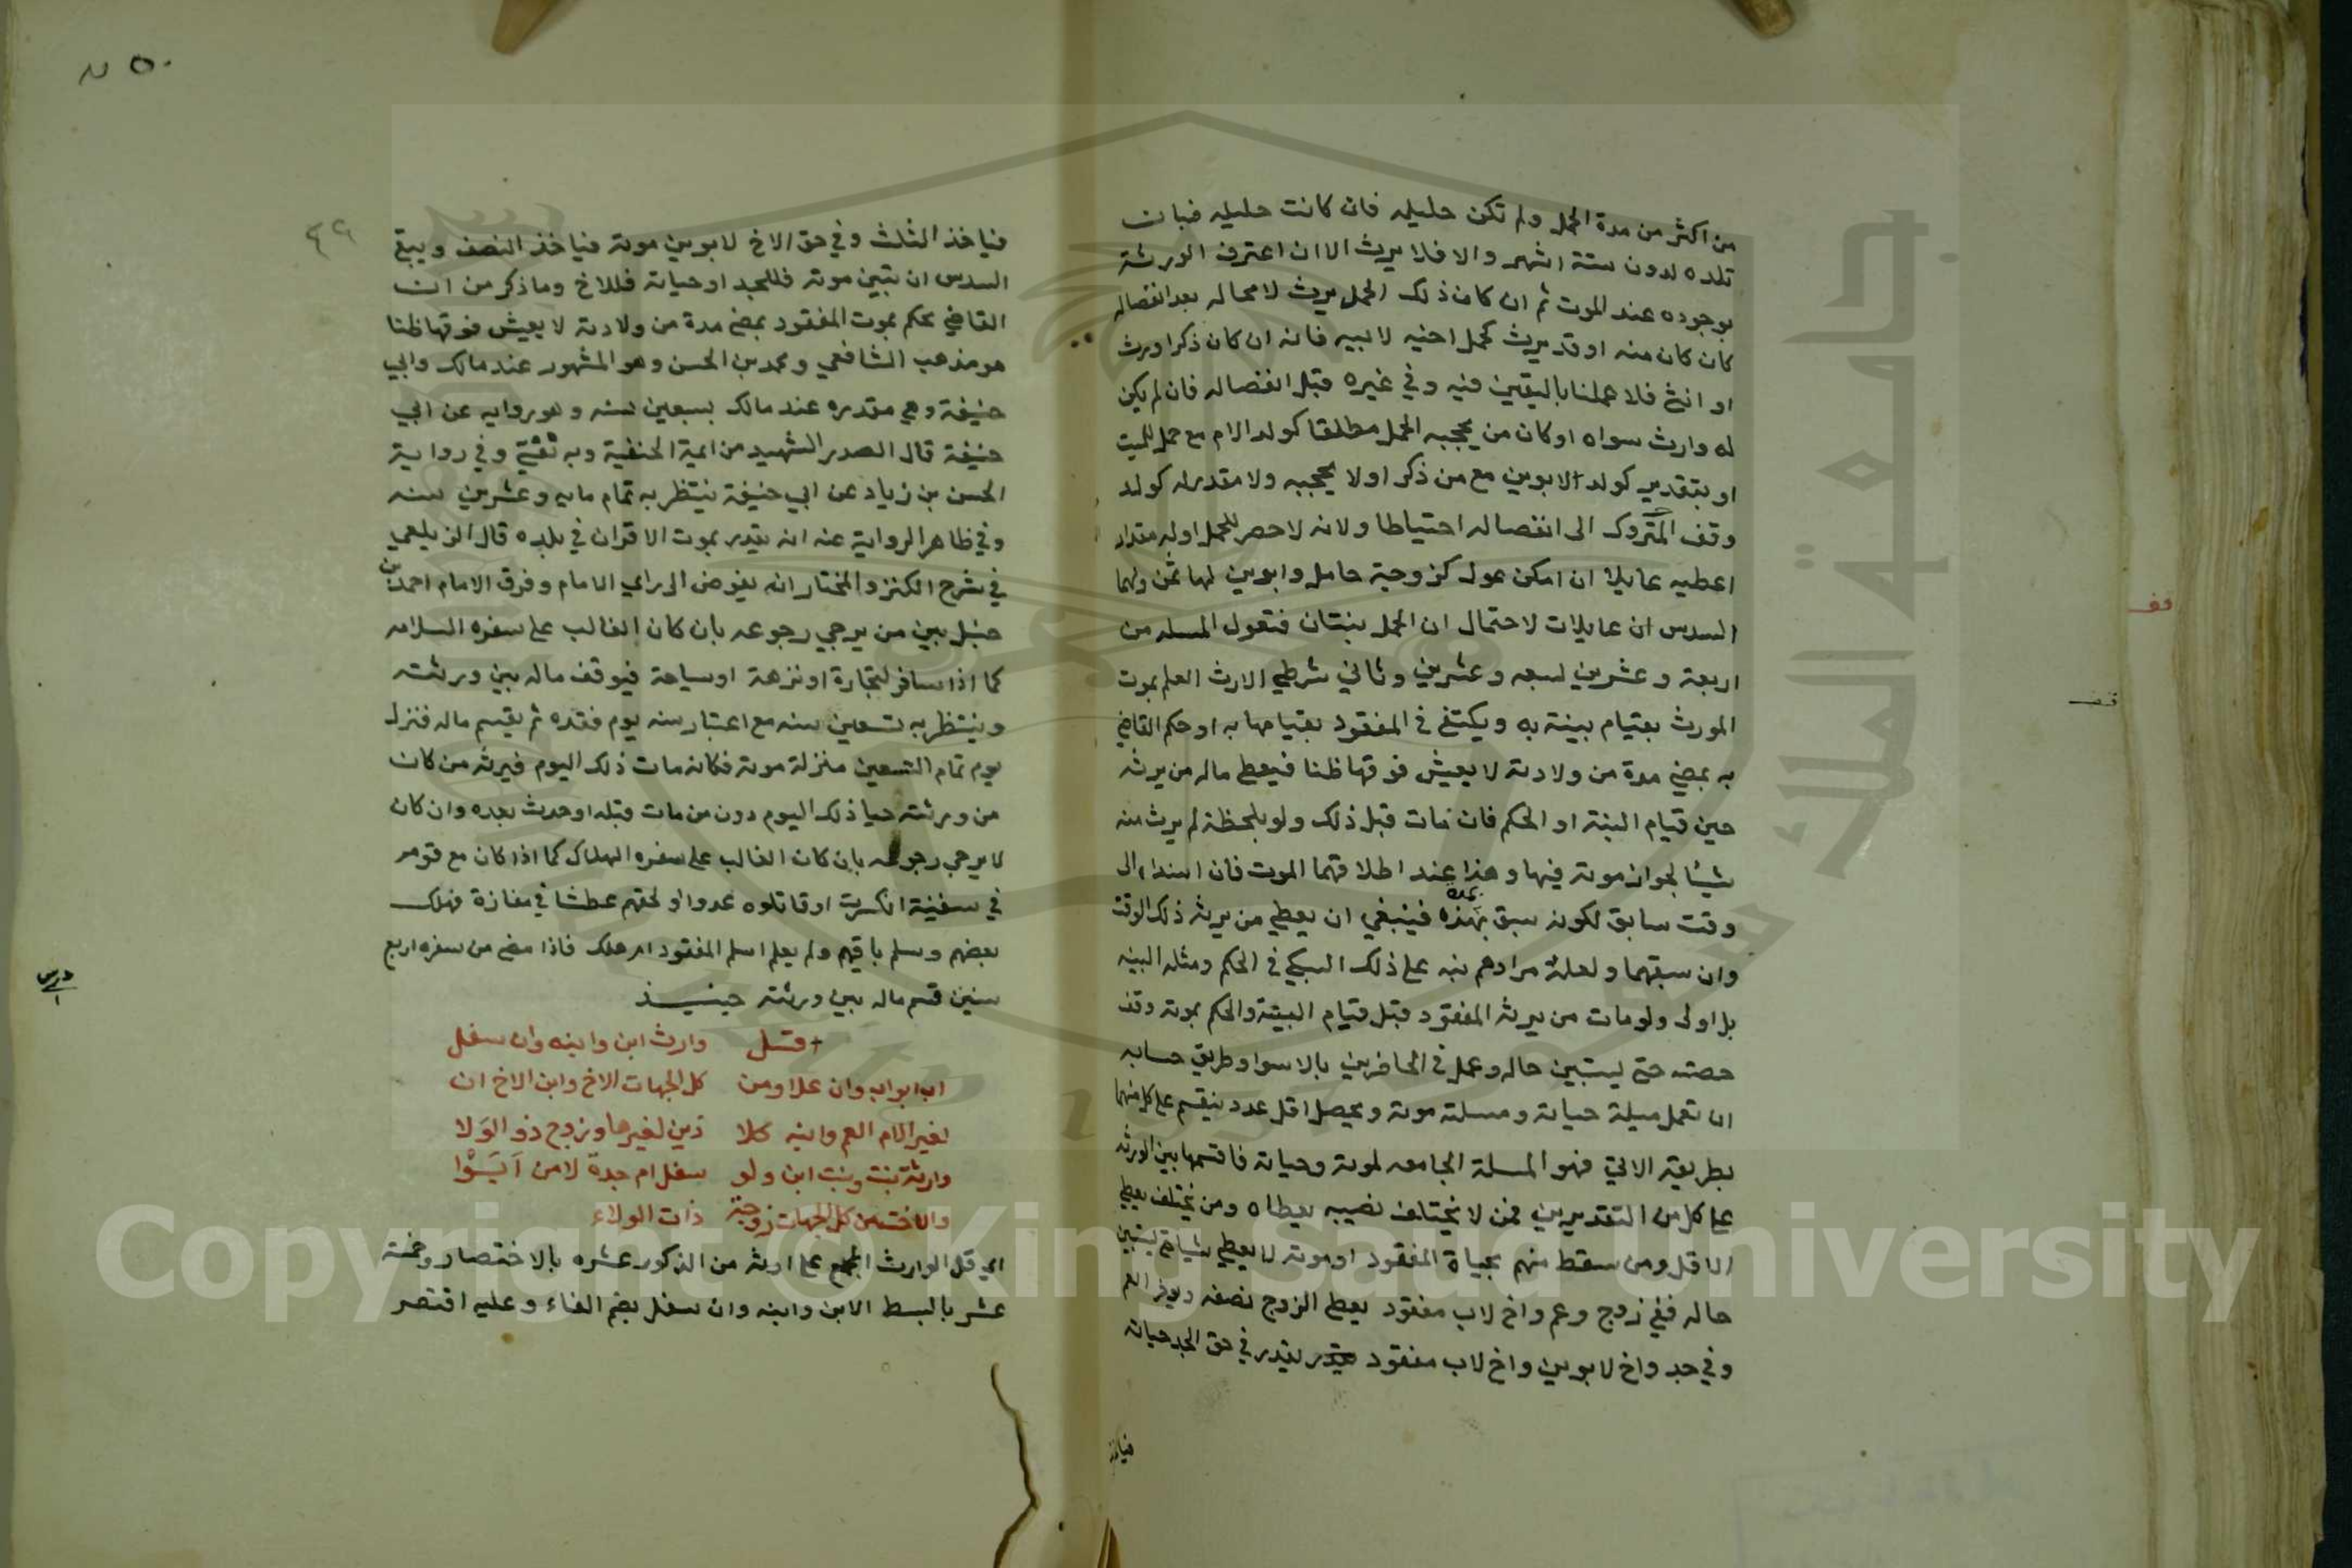 من اكثر من مدة الحمل ولم تكن حليله فان كانت حليله فبان ت
تلده لدون ستة اشهر والا فلا يرث الا ان اعترف الورثة
بوجوده عند الموت ثم ان كان ذلك الحمل يرث لا محاله بعد انفصاله
كان كان منه او قد يرث كحمل اخيه لابيه فانه ان كان ذكرا ورث
او انثى فلا عملنا باليقين فيه وفي غيره قبل انفصاله فان لم يكن
له وارث سواه او كان من يحجبه الحمل مطلقا كولد الام مع حمل للميت
او بتقدير كولد الابوين مع من ذكر او لا يحجبه ولا مقدر له كولد
وقف المتروك الى انفصاله احتياطا ولانه لا حصر للحمل او له مقدار
اعطيه عايلا ان امكن عول كزوجة حامل وابوين لها ثمن ولهما
السدس ان عايلات لاحتمال ان الحمل بنتان فتعول المسله من
اربعة وعشرين لسبعه وعشرين وثاني شرطي الارث العلم بموت
المورث بقيام بينة به ويكتفى في المفقود بقيامها به او حكم القاضي
به بمضي مدة من ولادته لا يعيش فوقها ظنا فيعطى ماله من يرثه
حين قيام البينة او الحكم فان مات قبل ذلك ولو بلحظة لم يرث منه
شيئا لجواز موته فيها وهذا عند اطلاقهما الموت فان اسنداه الى
وقت سابق لكونه سبق بمده فينبغي ان يعطى من يرثه ذلك الوقت
وان سبقهما ولعله مرادهم نبه على ذلك السبكي في الحكم ومثله البينه
بل اولى ولو مات من يرثه المفقود قبل قيام البينة والحكم بموته وقف
حصته حتى ليتبين حاله وعمل في الحاضرين بالاسوا وطريق حسابه
ان تعمل مسلة حياته ومسلته موته ويحصل اقل عدد ينقسم على كل منهما
بطريقه الاتي فهو المسلة الجامعه لموته وحياته فاقسمها بين الورثه
على كل من التقديرين فمن لا يختلف نصيبه يعطاه ومن يختلف يعطى
الاقل ومن سقط منهم بحياة المفقود او موته لا يعطى شياحتى يتبين
حاله ففي زوج وعم واخ لاب مفقود يعطى الزوج نصفه ويؤخر العم
وفي جد واخ لابوين واخ لاب مفقود يقدر في حق الجد حياته
فياخذ
قف
قف
٥٠
٤٩
فياخذ الثلث وفي حق الاخ لابوين موته فياخذ النصف ويبقى
السدس ان تبين موته فللجد او حياته فللاخ وما ذكر من ان
القاضي يحكم بموت المفقود بمضي مدة من ولادته لا يعيش فوقها ظنا
هو مذهب الشافعي ومحمد بن الحسن وهو المشهور عند مالك وابي
حنيفة وهي مقدره عند مالك بسبعين سنه وهو روايه عن ابي
حنيفة قال الصدر الشهيد من ايمة الحنفية وبه نفتي وفي رواية
الحسن بن زياد عن ابي حنيفة ينتظر به تمام مايه وعشرين سنه
وفي ظاهر الرواية عنه انه يقدر بموت الاقران في بلده قال الزيلعي
في شرح الكنز والمختار انه يفوض الى راي الامام وفرق الامام احمد بن
حنبل بين من يرجي رجوعه بان كان الغالب على سفره السلامه
كما اذا سافر لتجارة او نزهة او سياحة فيوقف ماله بين ورثته
وينتظر به تسعين سنه مع اعتبار سنه يوم فقده ثم يقسم ماله فنزل
يوم تمام التسعين منزلة موته فكانه مات ذلك اليوم فيرثه من كان
من ورثته حيا ذلك اليوم دون من مات قبله او حدث بعده وان كان
لا يرجي رجوعه بان كان الغالب على سفره الهلاك كما اذا كان مع قوم
في سفينة انكسرت او قاتلوه عدوا او لحقهم عطشا في مفازة فهلك
بعضهم وسلم باقيهم ولم يعلم اسلم المفقود ام هلك فاذا مضى من سفره اربع
سنين قسم ماله بين ورثته حينيذ
قتل وارث ابن وابنه وان سفل
اب ابواب وان علا ومن كل الجهات الاخ وابن الاخ ان
لغير الام العم وابنه كلا ذين لغيرها وزوج ذو الولا
وارثة بنت وبنت ابن ولو سفل ام جدة لا من
والاخت من كل الجهات زوجة ذات الولاء
اي قل الوارث المجمع على ارثه من الذكور عشره بالاختصار وخمسة
عشر بالبسط الابن وابنه وان سفل بضم الفاء وعليه اقتصر
جامعة الملك سعود
Copyright © King Saud University